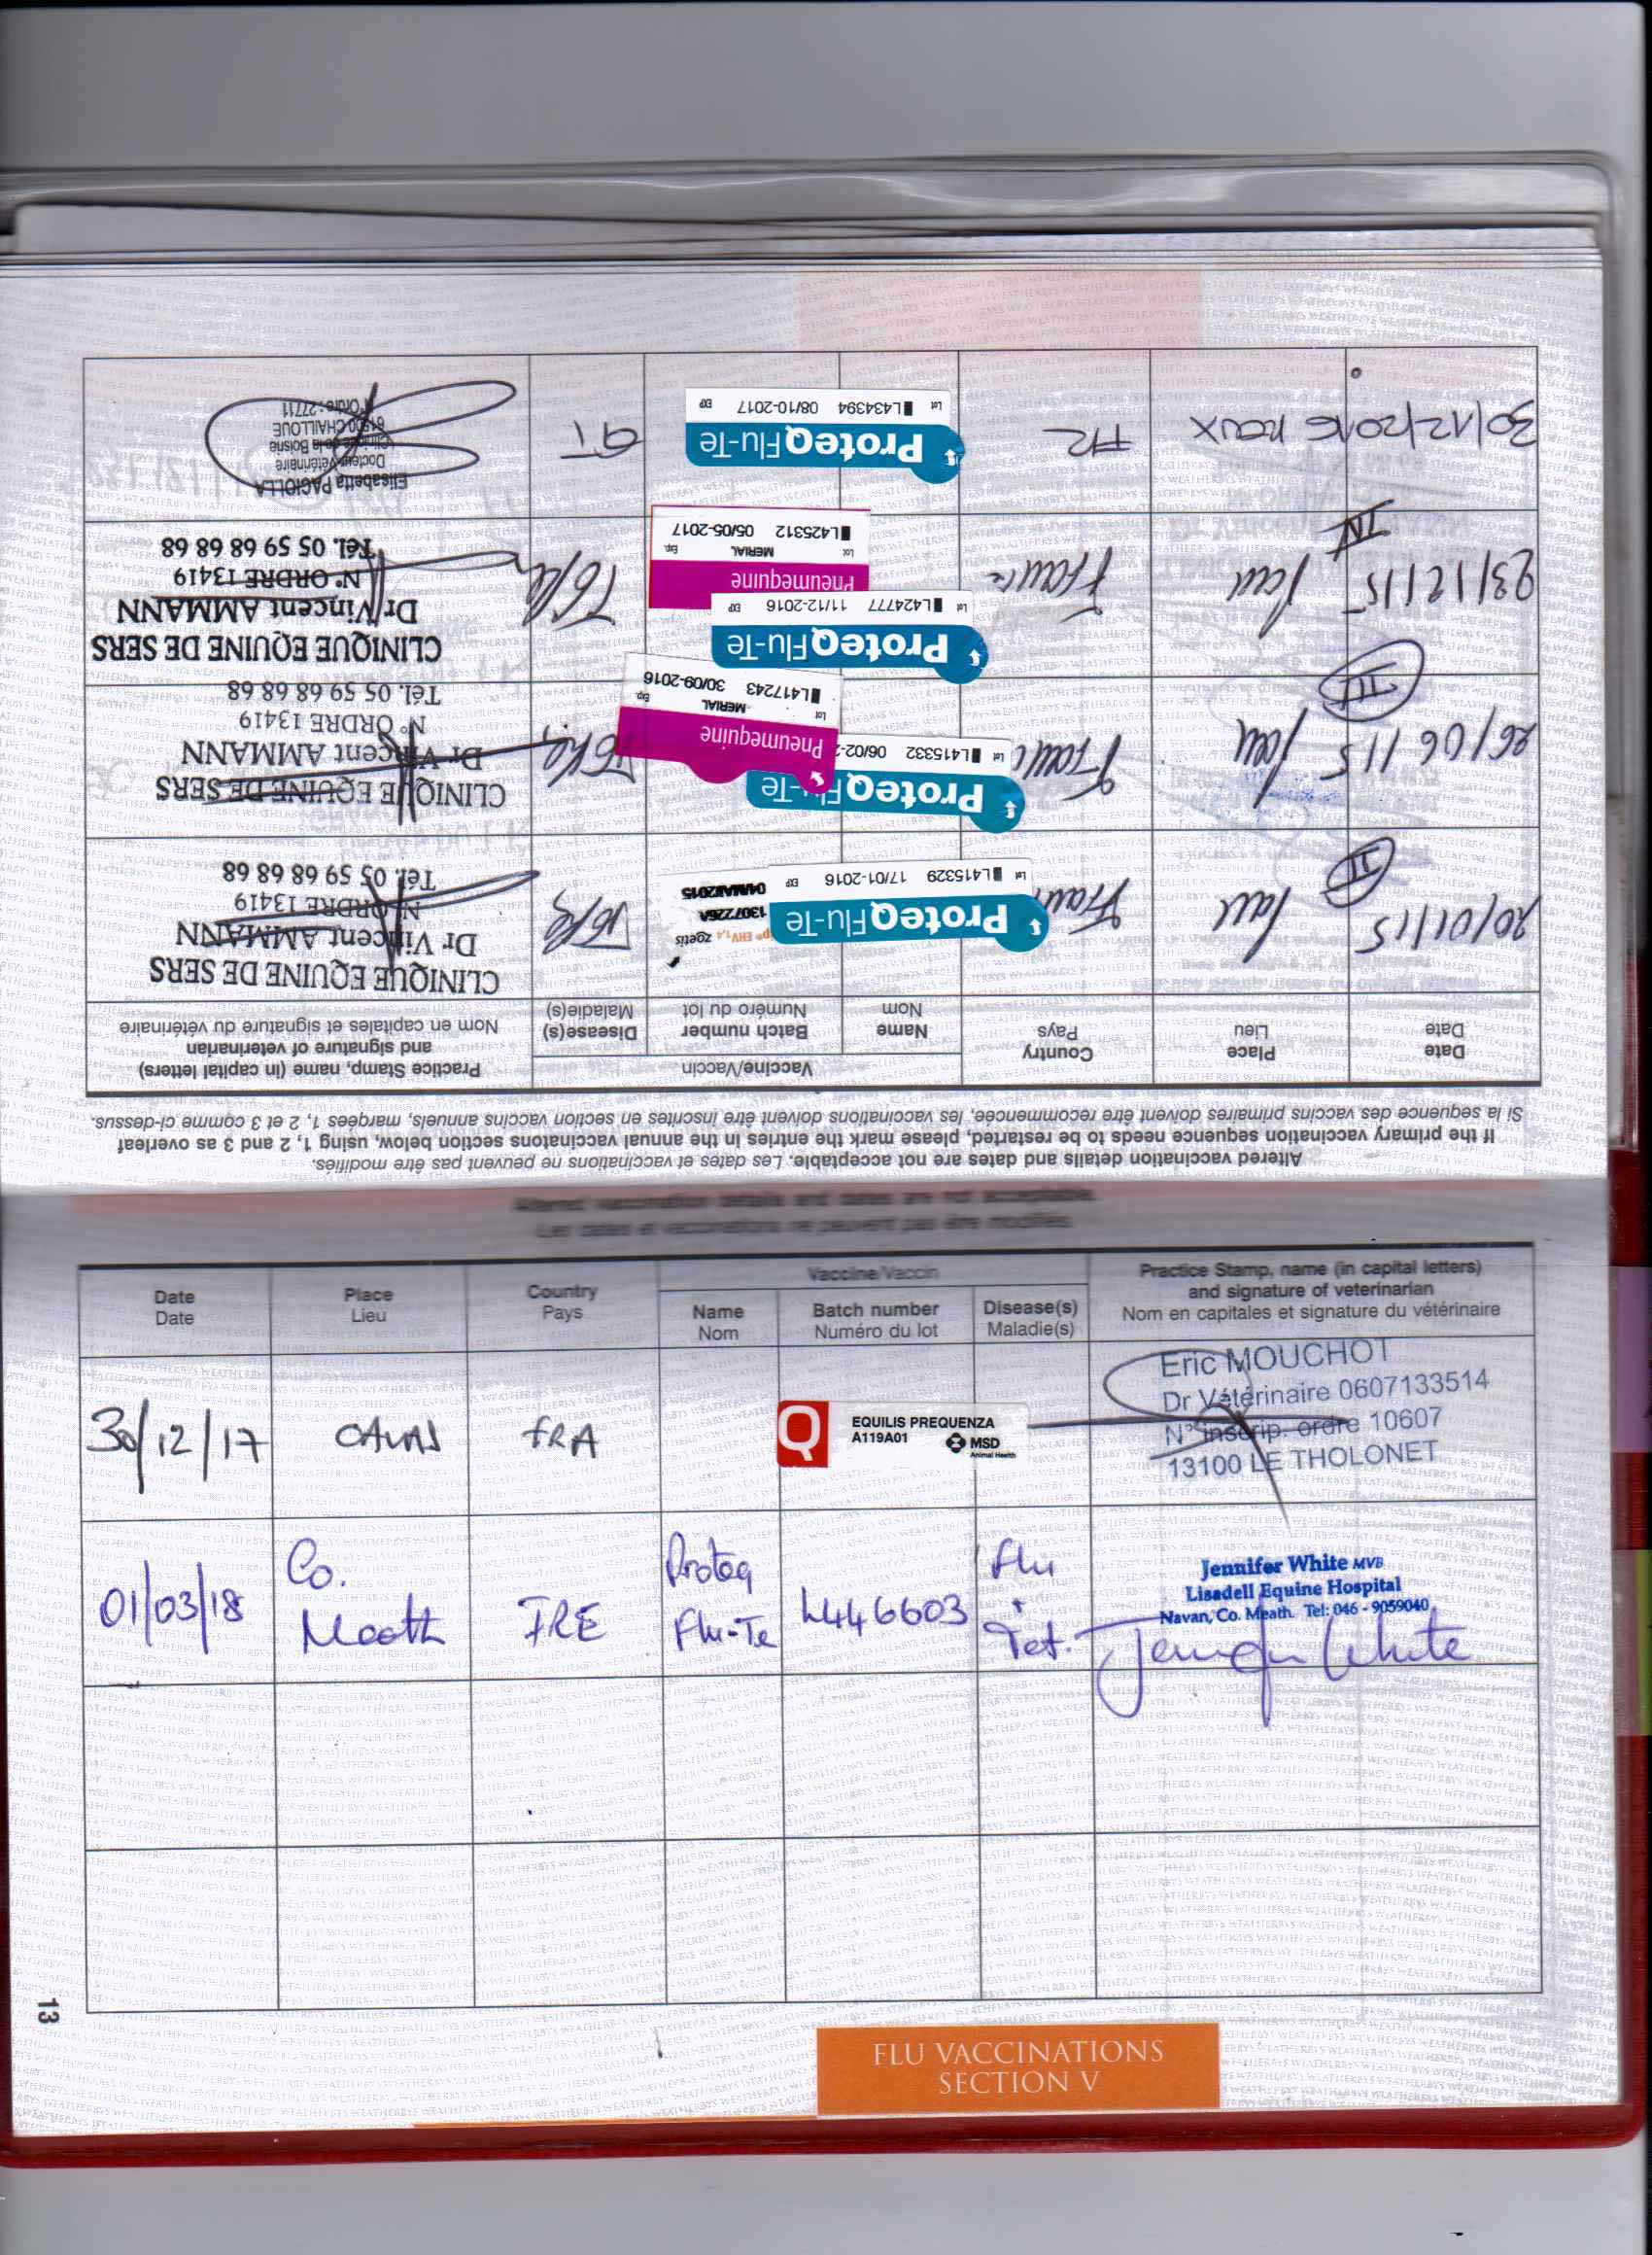 Altered vaccination details and dates are not acceptable. Les dates et vaccinations ne peuvent pas être modifiés.
If the primary vaccination sequence needs to be restarted, please mark the entries in the annual vaccinatons section below, using 1, 2 and 3 as overleaf
Si la séquence des vaccins primaires doivent être recommencée, les vaccinations doivent être inscrites en section vaccins annuels, marqées 1, 2 et 3 comme ci-dessus.
Date
Date
Place
Lieu
Country
Pays
Vaccine/Vaccin
Name
Nom
Batch number
Numéro du lot
Disease(s)
Maladie(s)
Practice Stamp, name (in capital letters)
and signature of veterinarian
Nom en capitales et signature du vétérinaire
20/01/15
II
Pau
ProteqFlu-Te
Lot L415329 17/01-2016 EXP
EHV1,4 zoetis
1307226A
04/MAI/2015
CLINIQUE EQUINE DE SERS
Dr Vincent AMMANN
N° ORDRE 13419
Tél. 05 59 68 68 68
26/06/15
III
Pau
ProteqFlu-Te
Lot L415332 06/02-
Pneumequine
MERIAL
Lot Exp.
L417243 30/09-2016
CLINIQUE EQUINE DE SERS
Dr Vincent AMMANN
N° ORDRE 13419
Tél. 05 59 68 68 68
23/12/15
IV
Pau
France
ProteqFlu-Te
Lot L424777 11/12-2016 EXP
Pneumequine
MERIAL
Lot Exp.
L425312 05/05-2017
CLINIQUE EQUINE DE SERS
Dr Vincent AMMANN
N° ORDRE 13419
Tél. 05 59 68 68 68
30/12/2016
FR
ProteqFlu-Te
Lot L434394 08/10-2017 EXP
GT
Elisabetta PAGIOLLA
Docteur Vétérinaire
Clinique de la Boisne
CHAILLOUE
N° Ordre : 27711
Altered vaccination details and dates are not acceptable.
Les dates et vaccinations ne peuvent pas être modifiés.
Date
Date
Place
Lieu
Country
Pays
Vaccine/Vaccin
Name
Nom
Batch number
Numéro du lot
Disease(s)
Maladie(s)
Practice Stamp, name (in capital letters)
and signature of veterinarian
Nom en capitales et signature du vétérinaire
30/12/17
FRA
Q
EQUILIS PREQUENZA
A119A01
MSD
Animal Health
Eric MOUCHOT
Dr Vétérinaire 0607133514
N° inscrip. ordre 10607
13100 LE THOLONET
01/03/18
Co.
Meath
IRE
Proteq
Flu-Te
L446603
Flu
+
Tet.
Jennifer White MVB
Lisadell Equine Hospital
Navan, Co. Meath. Tel: 046 - 9059040
Jennifer White
13
FLU VACCINATIONS
SECTION V